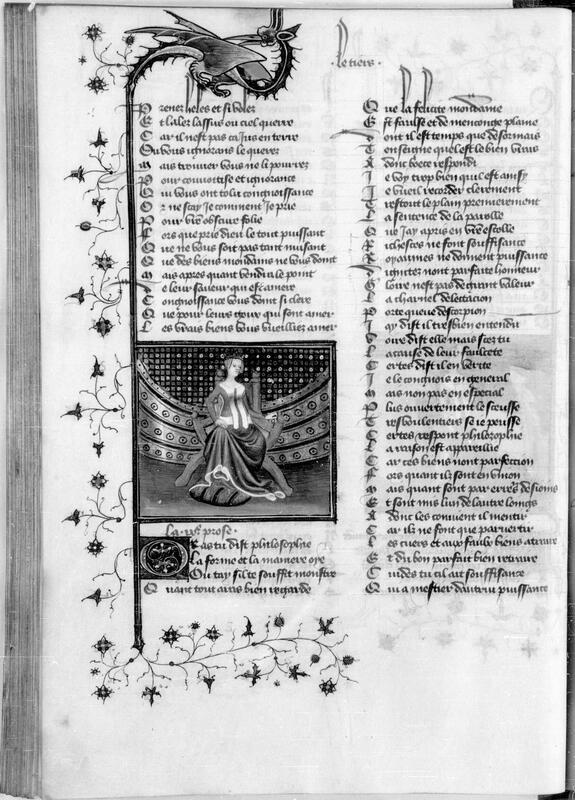 Le tiers
Prenez heles et si volez
Et lalez lassus ou ciel querre
Car il nest pas ca jus en terre
Ou vous ignorans le querez
mais trouver vous ne li pourrez
Pour couvoitise et ignorance
Qui vous ont tolu congnoissance
Or ne scay je comment je prie
Pour vre obscure folie
Fors que prie dieu le tout puissant
Que ne vous soit pas tant nuisant
Que des biens mondains ne vous dont
mais apres quant vendra le point
De leur saveur qui est amere
Congnoissance vous dont si clere
Que pour leurs gous qui sont amer
Les vrais biens vous vueilliez amer
La prose
As tu dist philosophie
La forme et la maniere oye
Ou tay sil te souffit monstre
Quant tout aras bien regarde
Que la felicite mondaine
Est faulse et de menconge plaine
Dont il est temps que desormais
Tenseigne quel est le bien vrais
Adonc boece respondi
Je voy trop bien quil est ainsy
Je vueil recorder clerement
Trestout le plain premierement
La sentence de la parolle
Que jay apris en vre escolle
Richesces ne font souffisance
Royaumes ne donnent puissance
Dignitez nont parfaite honneur
Gloire nest pas de grant valeur
La charnel delectacion
Porte queue descorpion
Jay dist il tresbien entendu
Voire dist elle mais scez tu
La cause de leur faulcete
Certes dist il en verite
Je le congnois en general
mais non pas en especial
Plus ouvertement le sceusse
Tresvoulentiers se je peusse
Certes respont philozophie
La raison est appareillie
Car ces biens nont parfection
Fors quant il sont en union
mais quant sont par erreurs desioins
Et sont mis lun de lautre loings
Adonc les convient il mentir
Car il ne font que parvertir
Les cuers et aux faulx biens atraire
Et du bon parfait bien retraire
Cuides tu cil ait souffisance
Qui a mestier dautrui puissance